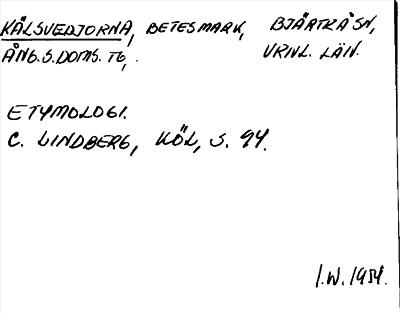 KÅLSVEDJORNA, BETESMARK, BJÄRTRÅ SN,
ÅNG.S.DOMS. TG, VRNL. LÄN.
ETYMOLOGI.
C. LINDBERG, KÖL, S. 94.
I.W. 1954.